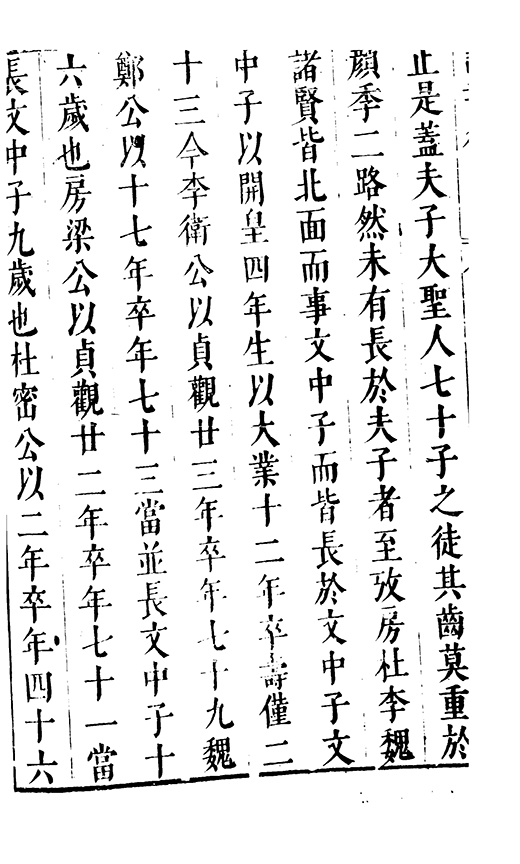 止是蓋夫子大聖人七十子之徒其齒莫重於
顔季二路然未有長於夫子者至攷房杜李魏
諸賢皆北面而事文中子而皆長於文中子文
中子以開皇四年生以大業十二年卒壽僅二
十三今李衛公以貞觀廿三年卒年七十九魏
鄭公以十七年卒年七十三當並長文中子十
六歲也房梁公以貞觀廿二年卒年七十一當
長文中子九歲也杜密公以二年卒年四十六